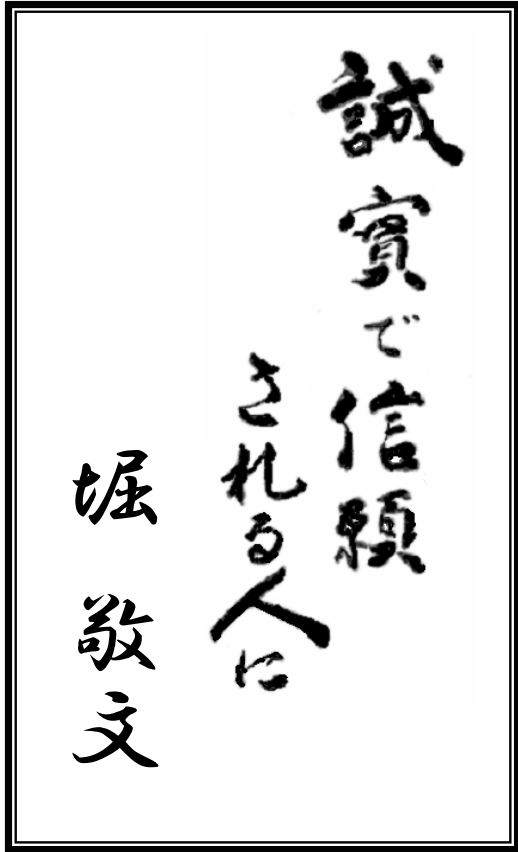 誠實で信頼
される人に
堀 敬文